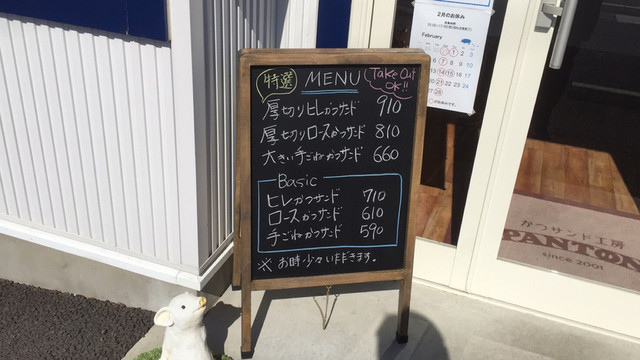 特選
MENU
Take Out
OK!!
厚切りヒレかつサンド 910
厚切りロースかつサンド 810
大きい手ごねかつサンド 660
Basic
ヒレかつサンド 710
ロースかつサンド 610
手ごねかつサンド 590
※ お時少々いただきます。
2月のお休み
February
かつサンド工房
PANTON
since 2001